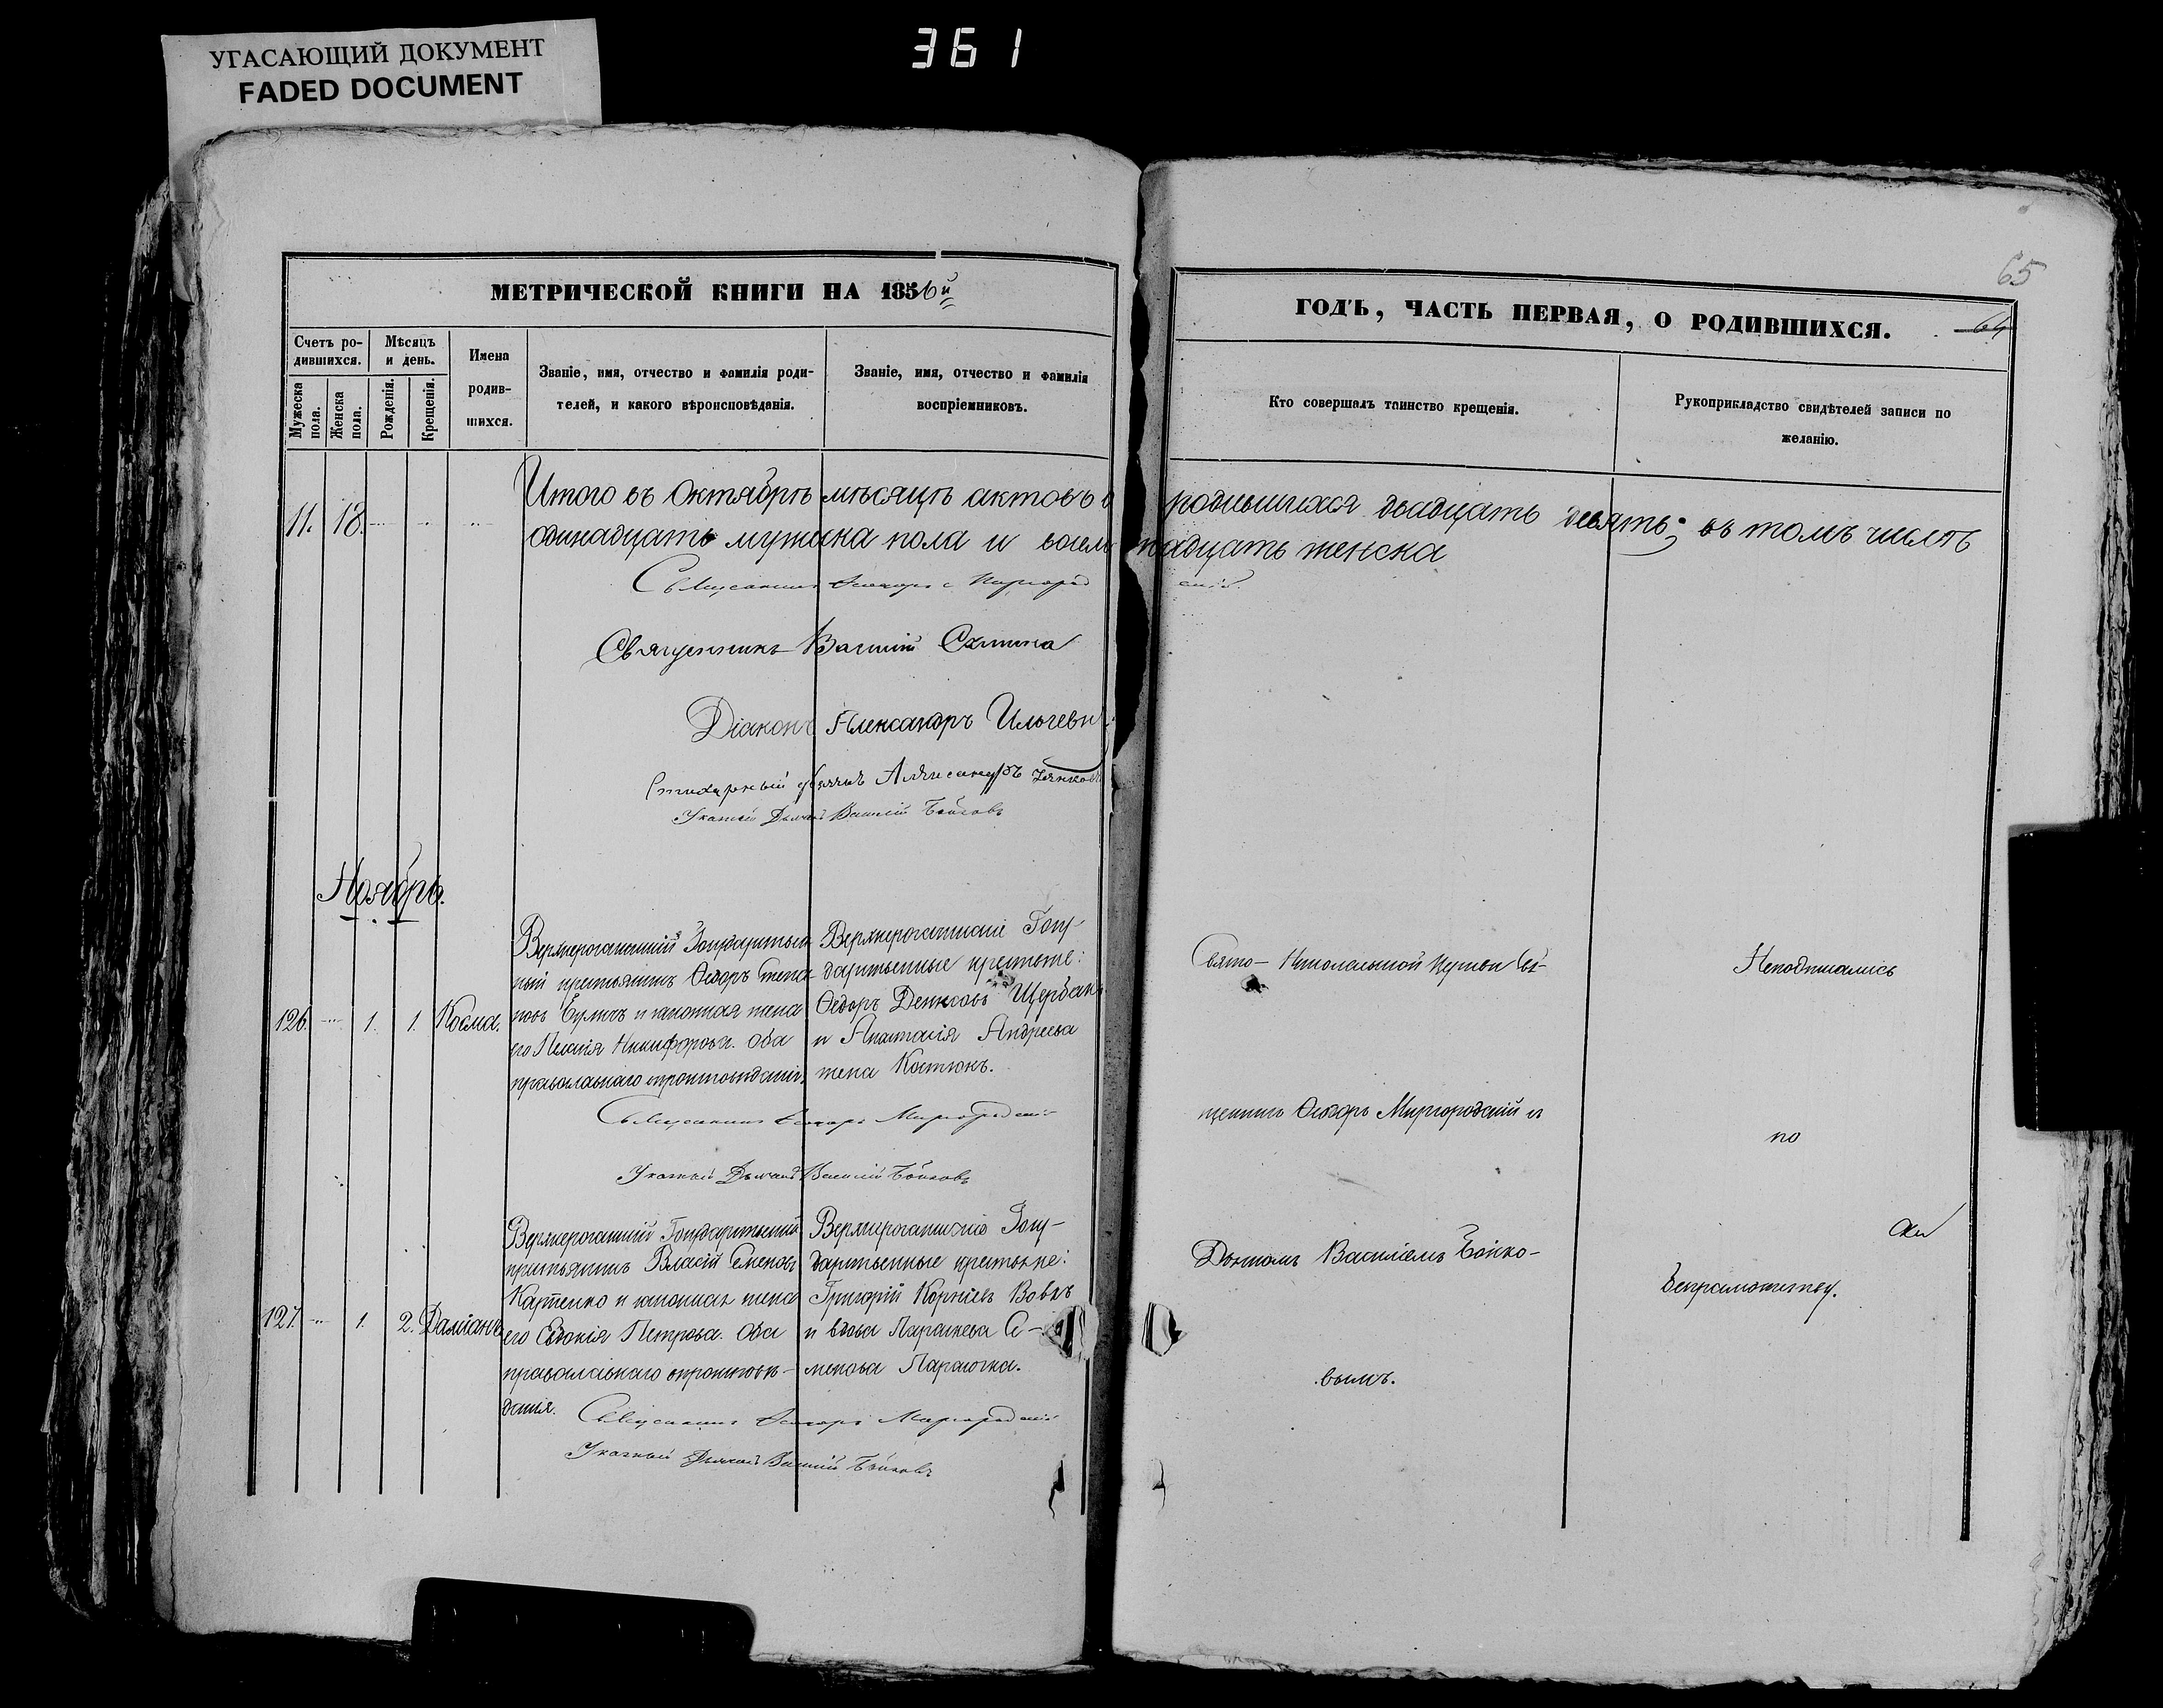 УГАСАЮЩИЙ ДОКУМЕНТ
FADED DOCUMENT
361
65
МЕТРИЧЕСКОЙ КНИГИ НА 1856й
ГОДЪ, ЧАСТЬ ПЕРВАЯ, О РОДИВШИХСЯ.
64
Счетъ ро-
дившихся.
Мужеска
пола.
Женска
пола.
Мѣсяцъ
и день.
Рожденія.
Крещенія.
Имена
родив-
шихся.
Званіе, имя, отчество и фамилія роди-
телей, и какого вѣроисповѣданія.
Званіе, имя, отчество и фамилія
воспріемниковъ.
Кто совершалъ таинство крещенія.
Рукоприкладство свидѣтелей записи по
желанію.
11. 18. Итого въ Октябрѣ мѣсяцѣ актовъ о родившихся двадцать девять; въ томъ числѣ
одинадцать мужска пола и восемнадцать женска
Священникъ Василій
Діаконъ Александръ Ильчевич
Стихарный Александръ
Указный Дьячокъ Василій Бойковъ
Ноябрь.
126. 1. 1. Косма.
Верхнерогачицкій Государствен
ный крестьянинъ Ѳедоръ Степа
новъ и законная жена
его Никифорова. Оба
православнаго вѣроисповѣданія.
Верхнерогачицкіе Госу-
дарственные крестьяне:
Ѳедоръ Денисовъ Щербакъ
и Анастасія Андреева
жена Костюкъ.
Священникъ Ѳеодоръ Миргородскій
Указный Дьячокъ Василій Бойковъ
127. 1. 2. Даміанъ
Верхнерогачицкій Государственный
крестьянинъ Власій Семеновъ
и законная жена
его Евдокія Петрова. Оба
православнаго вѣроисповѣ-
данія.
Верхнерогачицкіе Госу-
дарственные крестьяне:
Григорій Корніевъ Вовкъ
и вдова Параскева Се-
менова
Священникъ Ѳеодоръ Миргородскій
Указный Дьячокъ Василій Бойковъ
Свято-Николаевской Церкви Свя-
щенникъ Ѳеодоръ Миргородскій и
Дьячкомъ Василіемъ Бойко-
вымъ.
Неподписались
по
безграмотству.